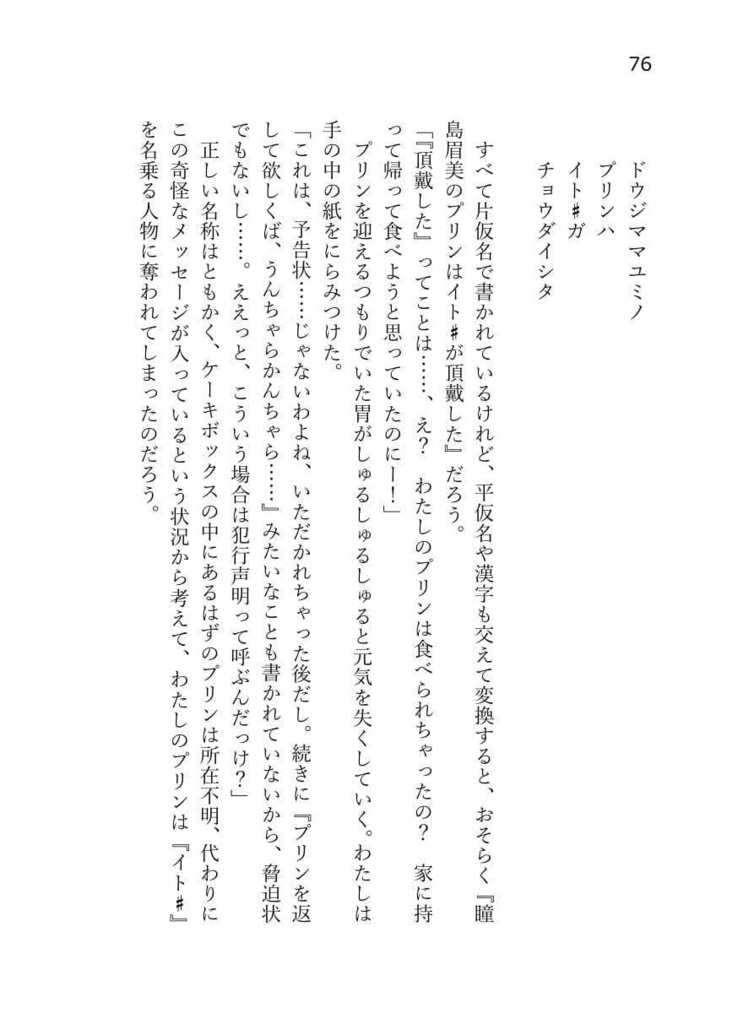 76
ドウジママユミノ
プリンハ
イト♯ガ
チョウダイシタ
すべて片仮名で書かれているけれど、平仮名や漢字も交えて変換すると、おそらく『瞳
島眉美のプリンはイト♯が頂戴した』だろう。
「『頂戴した』ってことは……、え？　わたしのプリンは食べられちゃったの？　家に持
って帰って食べようと思っていたのにー！」
プリンを迎えるつもりでいた胃がしゅるしゅるしゅると元気を失くしていく。わたしは
手の中の紙をにらみつけた。
「これは、予告状……じゃないわよね、いただかれちゃった後だし。続きに『プリンを返
して欲しくば、うんちゃらかんちゃら……』みたいなことも書かれていないから、脅迫状
でもないし……。ええっと、こういう場合は犯行声明って呼ぶんだっけ？」
正しい名称はともかく、ケーキボックスの中にあるはずのプリンは所在不明、代わりに
この奇怪なメッセージが入っているという状況から考えて、わたしのプリンは『イト♯』
を名乗る人物に奪われてしまったのだろう。